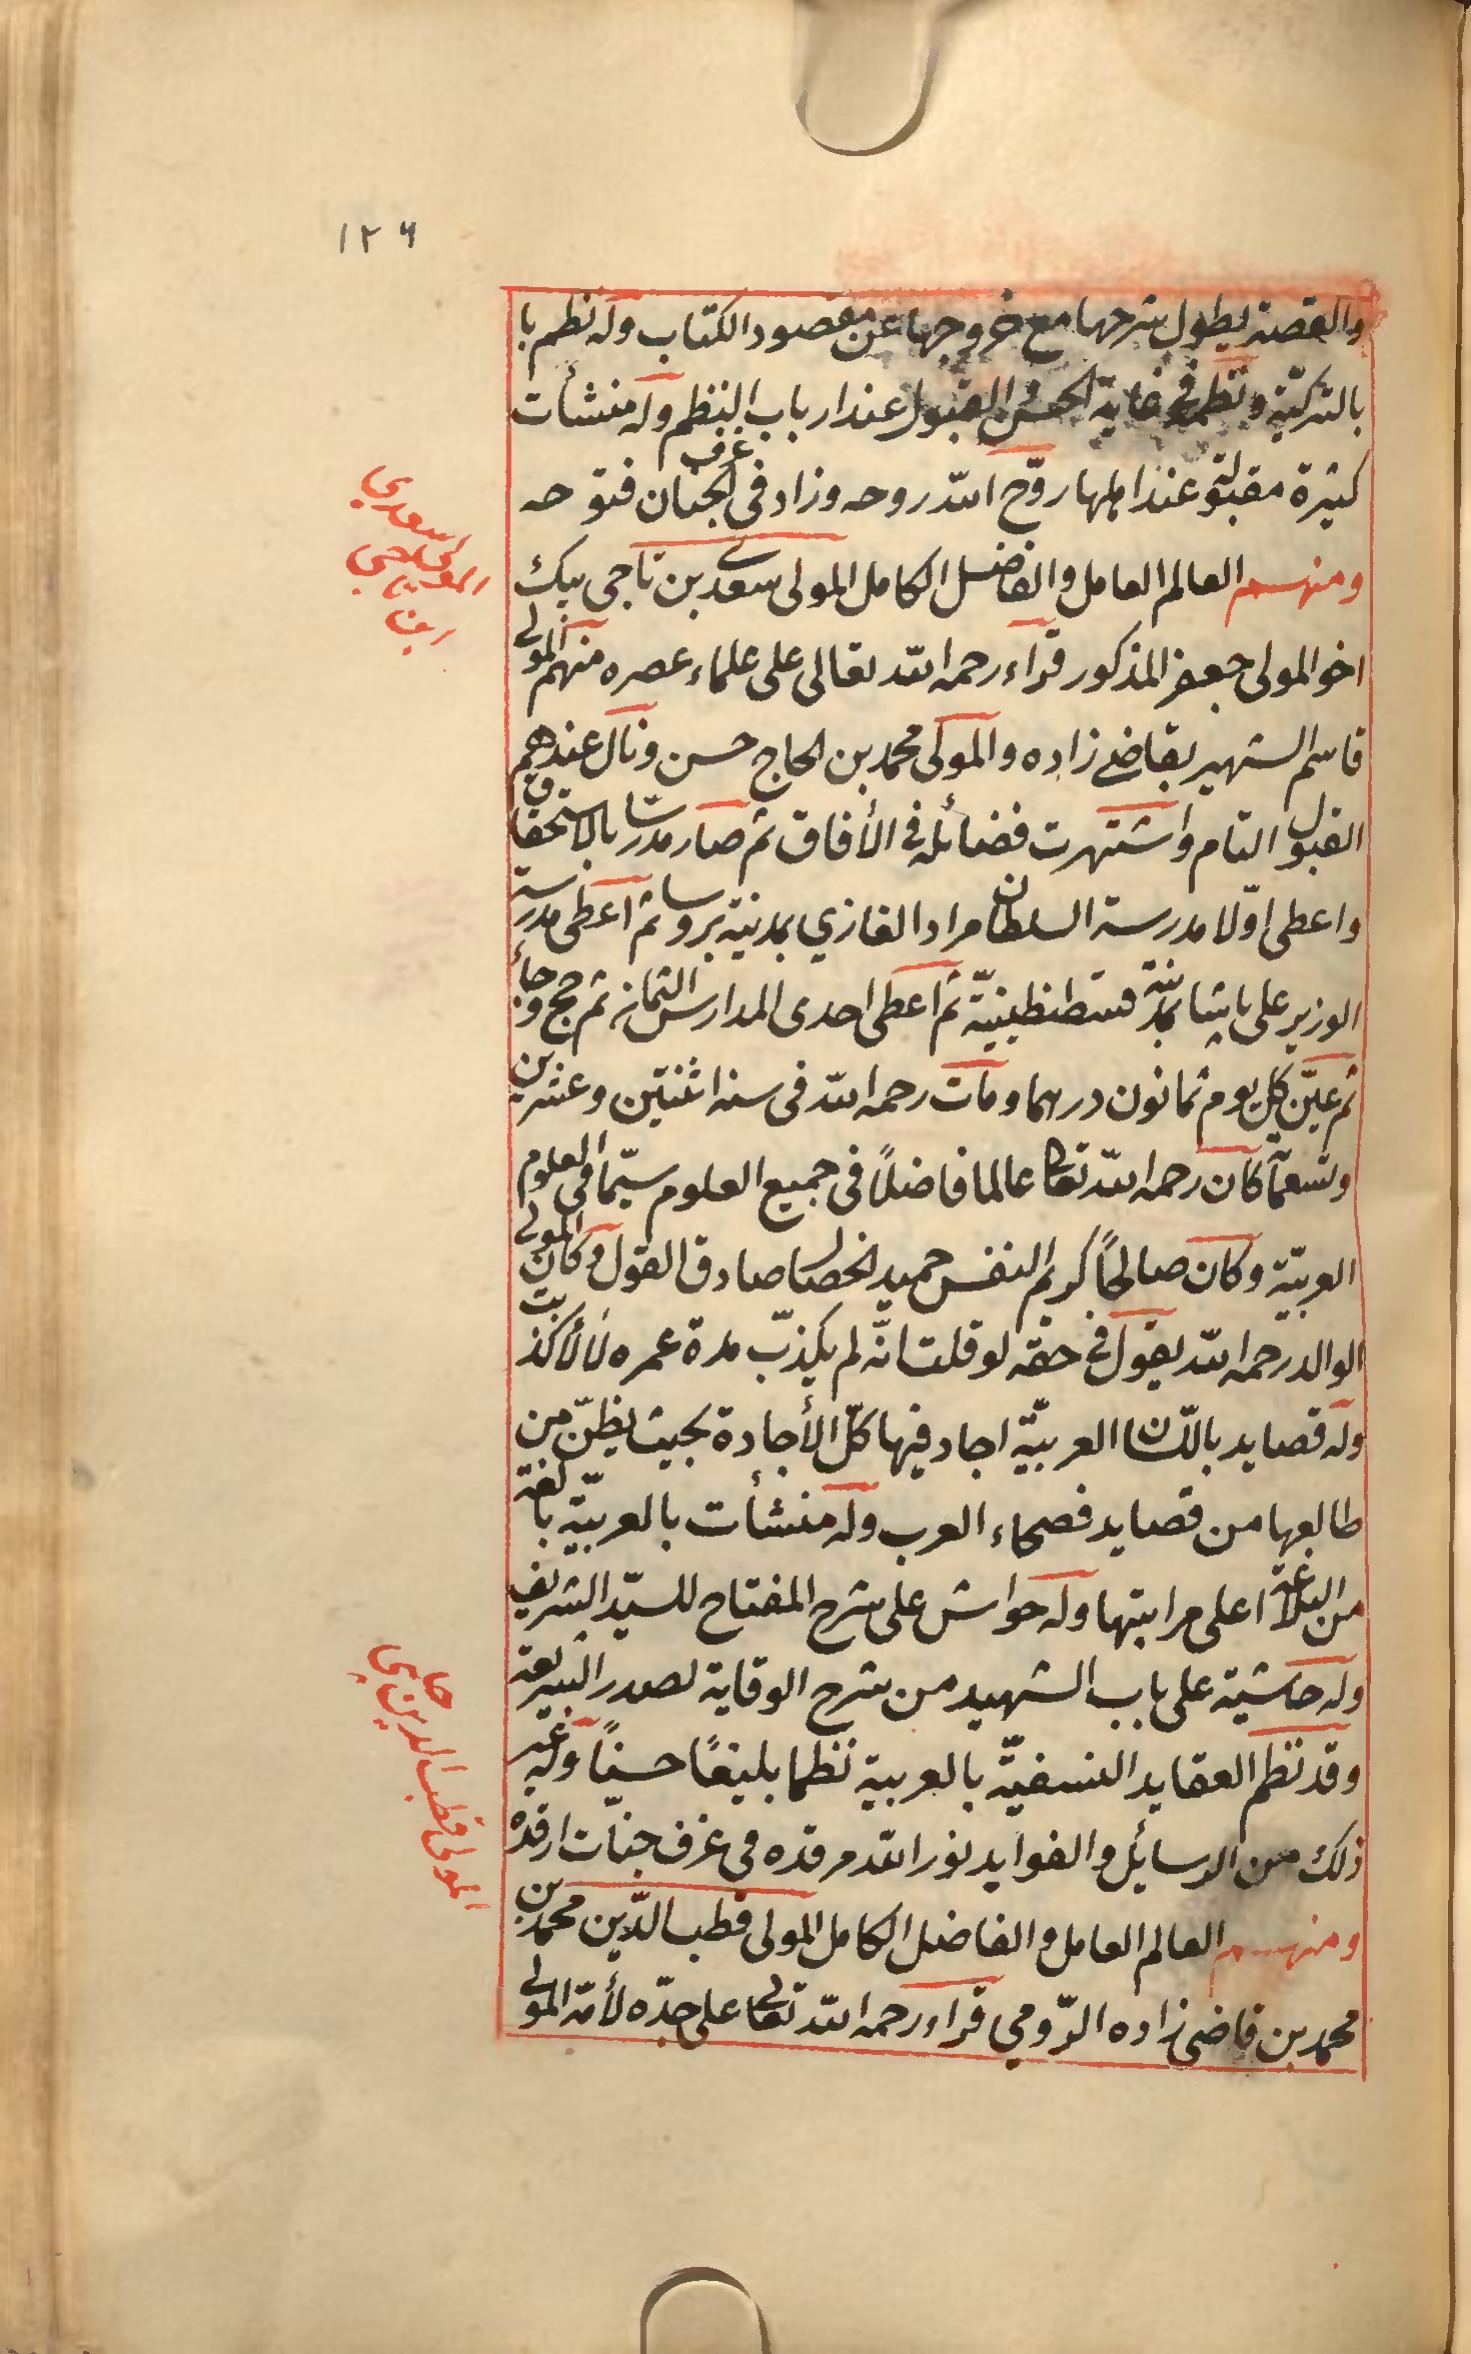 ١٢٦
والقصة يطول شرحها مع خروجها عن مقصود الكتاب وله نظم با
بالتركية ونظمه في غاية الحسن والقبول عند ارباب النظم وله منشأت
كثيرة مقبولة عند اهلها روّح الله روحه وزاد في غرف الجنان فتوحه
ومنهم العالم العامل والفاضل الكامل المولى سعدي بن ناجي بيك
اخو المولى جعفر المذكور قراء رحمه الله تعالى على علماء عصره منهم المولى
قاسم الشهير بقاضي زاده والمولى محمد بن الحاج حسن ونال عندهم
القبول التام واشتهرت فضائله في الأفاق ثم صار مدرسا بالاستحقاق
واعطى اوّلا مدرسة السلطان مراد الغازي بمدينة بروسا ثم اعطى مدرسة
الوزير على باشا بمدينة قسطنطينيّة ثم اعطى احدى المدارس الثمان ثم حج وجاء
ثم عيّن كل يوم ثمانون درهما ومات رحمه الله في سنه اثنتين وعشرين
وتسعمآ كان رحمه الله تعالى عالما فاضلاً في جميع العلوم سيّما في العلوم
العربيّة وكان صالحاً كريم النفس حميد الخصال صادق القول وكان المولى
الوالد رحمه الله يقول في حقه لو قلت انّه لم يكذب مدة عمره لما كذبت
وله قصايد باللسان العربيّة اجاد فيها كلّ الأجادة بحيث يظنّ من
طالعها من قصايد فصحاء العرب وله منشأت بالعربيّة بالغة
من البلاغة اعلى مراتبها وله حواش على شرح المفتاح للسيّد الشريف
وله حاشية على باب الشهيد من شرح الوقاية لصدر الشريعة
وقد نظم العقايد النسفيّة بالعربية نظما بليغًا حسناً وله غير
ذلك من الرسائل والفوايد نور الله مرقده في غرف جنّات ارقده
ومنهم العالم العامل والفاضل الكامل المولى قطب الدّين محمد بن
محمد بن قاضي زاده الرّومي قراء رحمه الله تعالى على جدّه لأمّه المولى
المولى سعدي
چلبي
ابن ناجي
المولى قطب الدين
چلبي